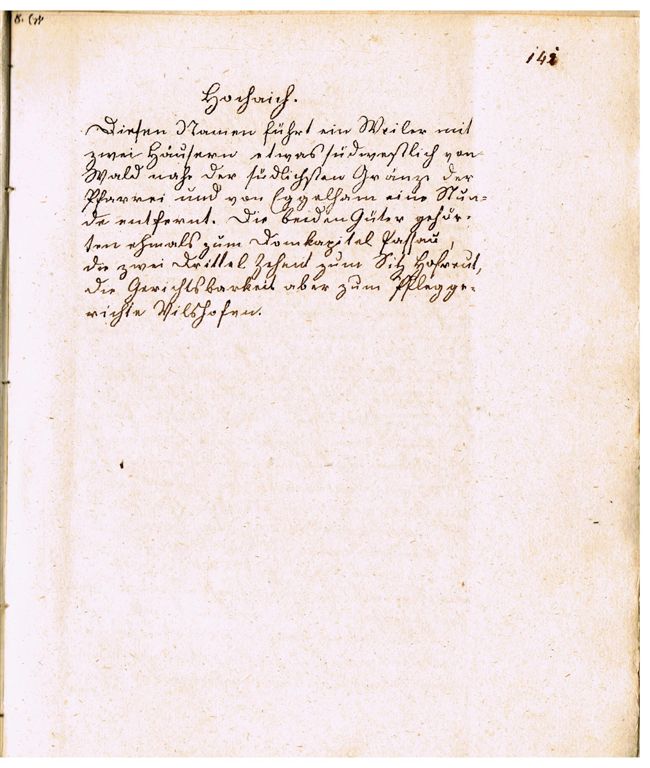 142
Hochaich.
Diesen Namen führt ein Weiler mit
zwei Häusern etwas südwestlich von
Wald nahe der südlichsten Gränze der
Pfarrei und von Eggelham eine Stun=
de entfernt. Die beiden Güter gehör=
ten ehmals zum Domkapitel Passau,
die zwei Drittel Zehent zum Sitz Hofreut,
die Gerichtsbarkeit aber zum Pflegge=
richte Vilshofen.